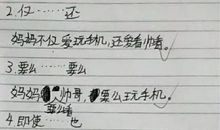 2.仅……还
妈妈不仅爱玩手机,还爱看帅哥。
3.要么……要么
妈妈帅哥,要么玩手机。
要么看
4.即使……也